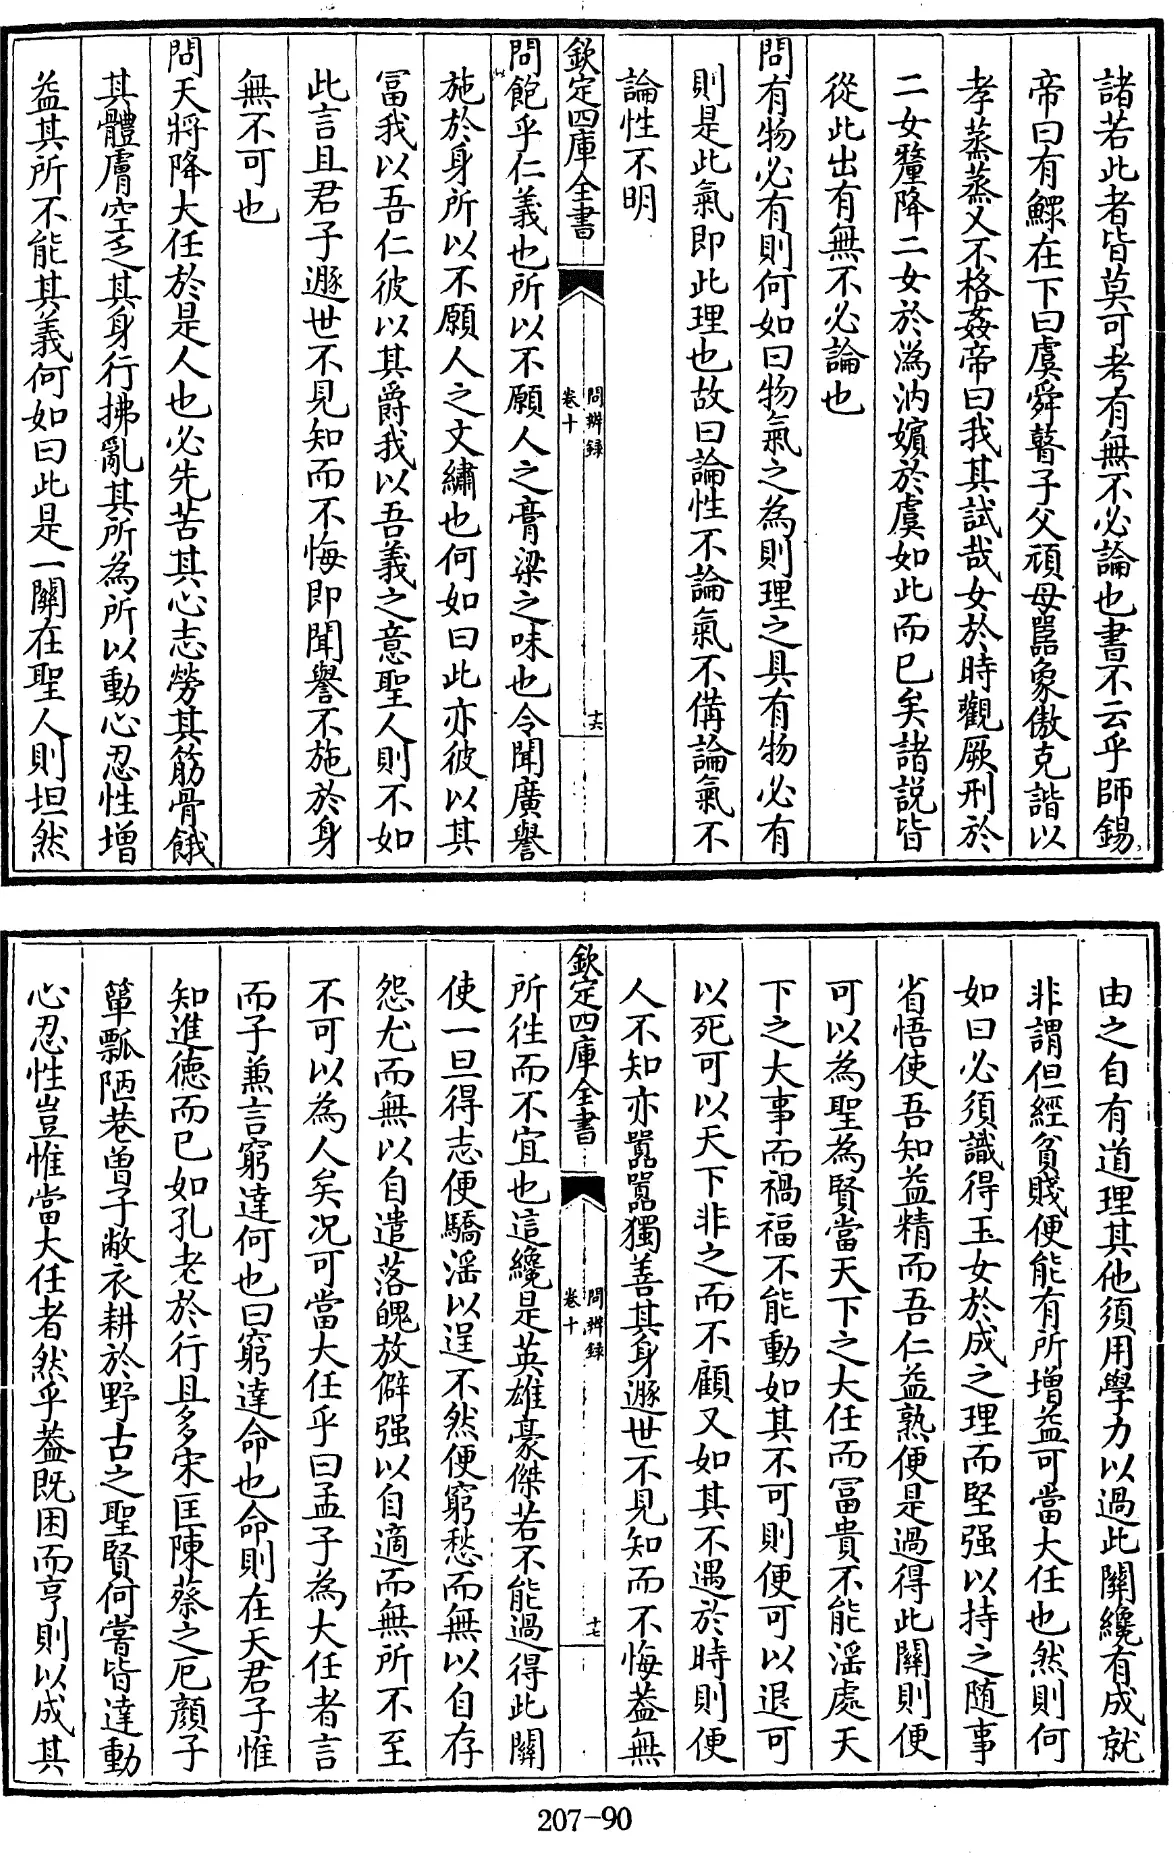 諸若此者皆莫可考有無不必論也書不云乎師錫
帝曰有鰥在下曰虞舜瞽子父頑母嚚象傲克諧以
孝蒸蒸乂不格姦帝曰我其試哉女於時觀厥刑於
二女釐降二女於溈汭嬪於虞如此而已矣諸説皆
從此出有無不必論也
問有物必有則何如曰物氣之為則理之具有物必有
則是此氣即此理也故曰論性不論氣不備論氣不
論性不明
欽定四庫全書
問辨録
卷十
十六
問飽乎仁義也所以不願人之膏粱之味也令聞廣譽
施於身所以不願人之文繡也何如曰此亦彼以其
冨我以吾仁彼以其爵我以吾義之意聖人則不如
此言且君子遯世不見知而不悔即聞譽不施於身
無不可也
問天將降大任於是人也必先苦其心志勞其筋骨餓
其體膚空乏其身行拂亂其所為所以動心忍性增
益其所不能其義何如曰此是一關在聖人則坦然
由之自有道理其他須用學力以過此關纔有成就
非謂但經貧賤便能有所增益可當大任也然則何
如曰必須識得玉女於成之理而堅强以持之随事
省悟使吾知益精而吾仁益熟便是過得此關則便
可以為聖為賢當天下之大任而冨貴不能淫處天
下之大事而禍福不能動如其不可則便可以退可
以死可以天下非之而不顧又如其不遇於時則便
人不知亦囂囂獨善其身遯世不見知而不悔葢無
欽定四庫全書
問辨録
卷十
十七
所徃而不宜也這纔是英雄豪傑若不能過得此關
使一旦得志便驕淫以逞不然便窮愁而無以自存
怨尤而無以自遣落魄放僻强以自適而無所不至
不可以為人矣况可當大任乎曰孟子為大任者言
而子兼言窮達何也曰窮達命也命則在天君子惟
知進德而已如孔老於行且多宋匡陳蔡之厄顔子
簞瓢陋巷曾子敝衣耕於野古之聖賢何嘗皆達動
心忍性豈惟當大任者然乎葢既困而亨則以成其
207-90